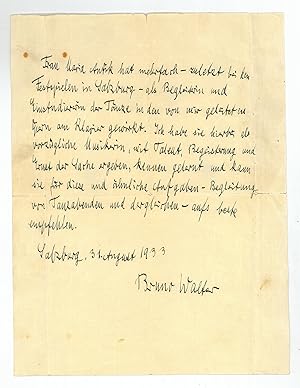 Frau Maria hat mehrfach – zuletzt bei den
Festspielen in Salzburg – als Begleiterin und
Einstudiererin der Tänze in den von mir geleiteten
Opern am Klavier gewirkt. Ich habe sie hierbei als
vorzügliche Musikerin, mit Talent, Begeisterung und
Ernst der Sache ergeben, kennen gelernt und kann
sie für diese und ähnliche Aufgaben – Begleitung
von Tanzabenden und dergleichen – aufs beste
empfehlen.
Salzburg, 31. August 1933
Bruno Walter